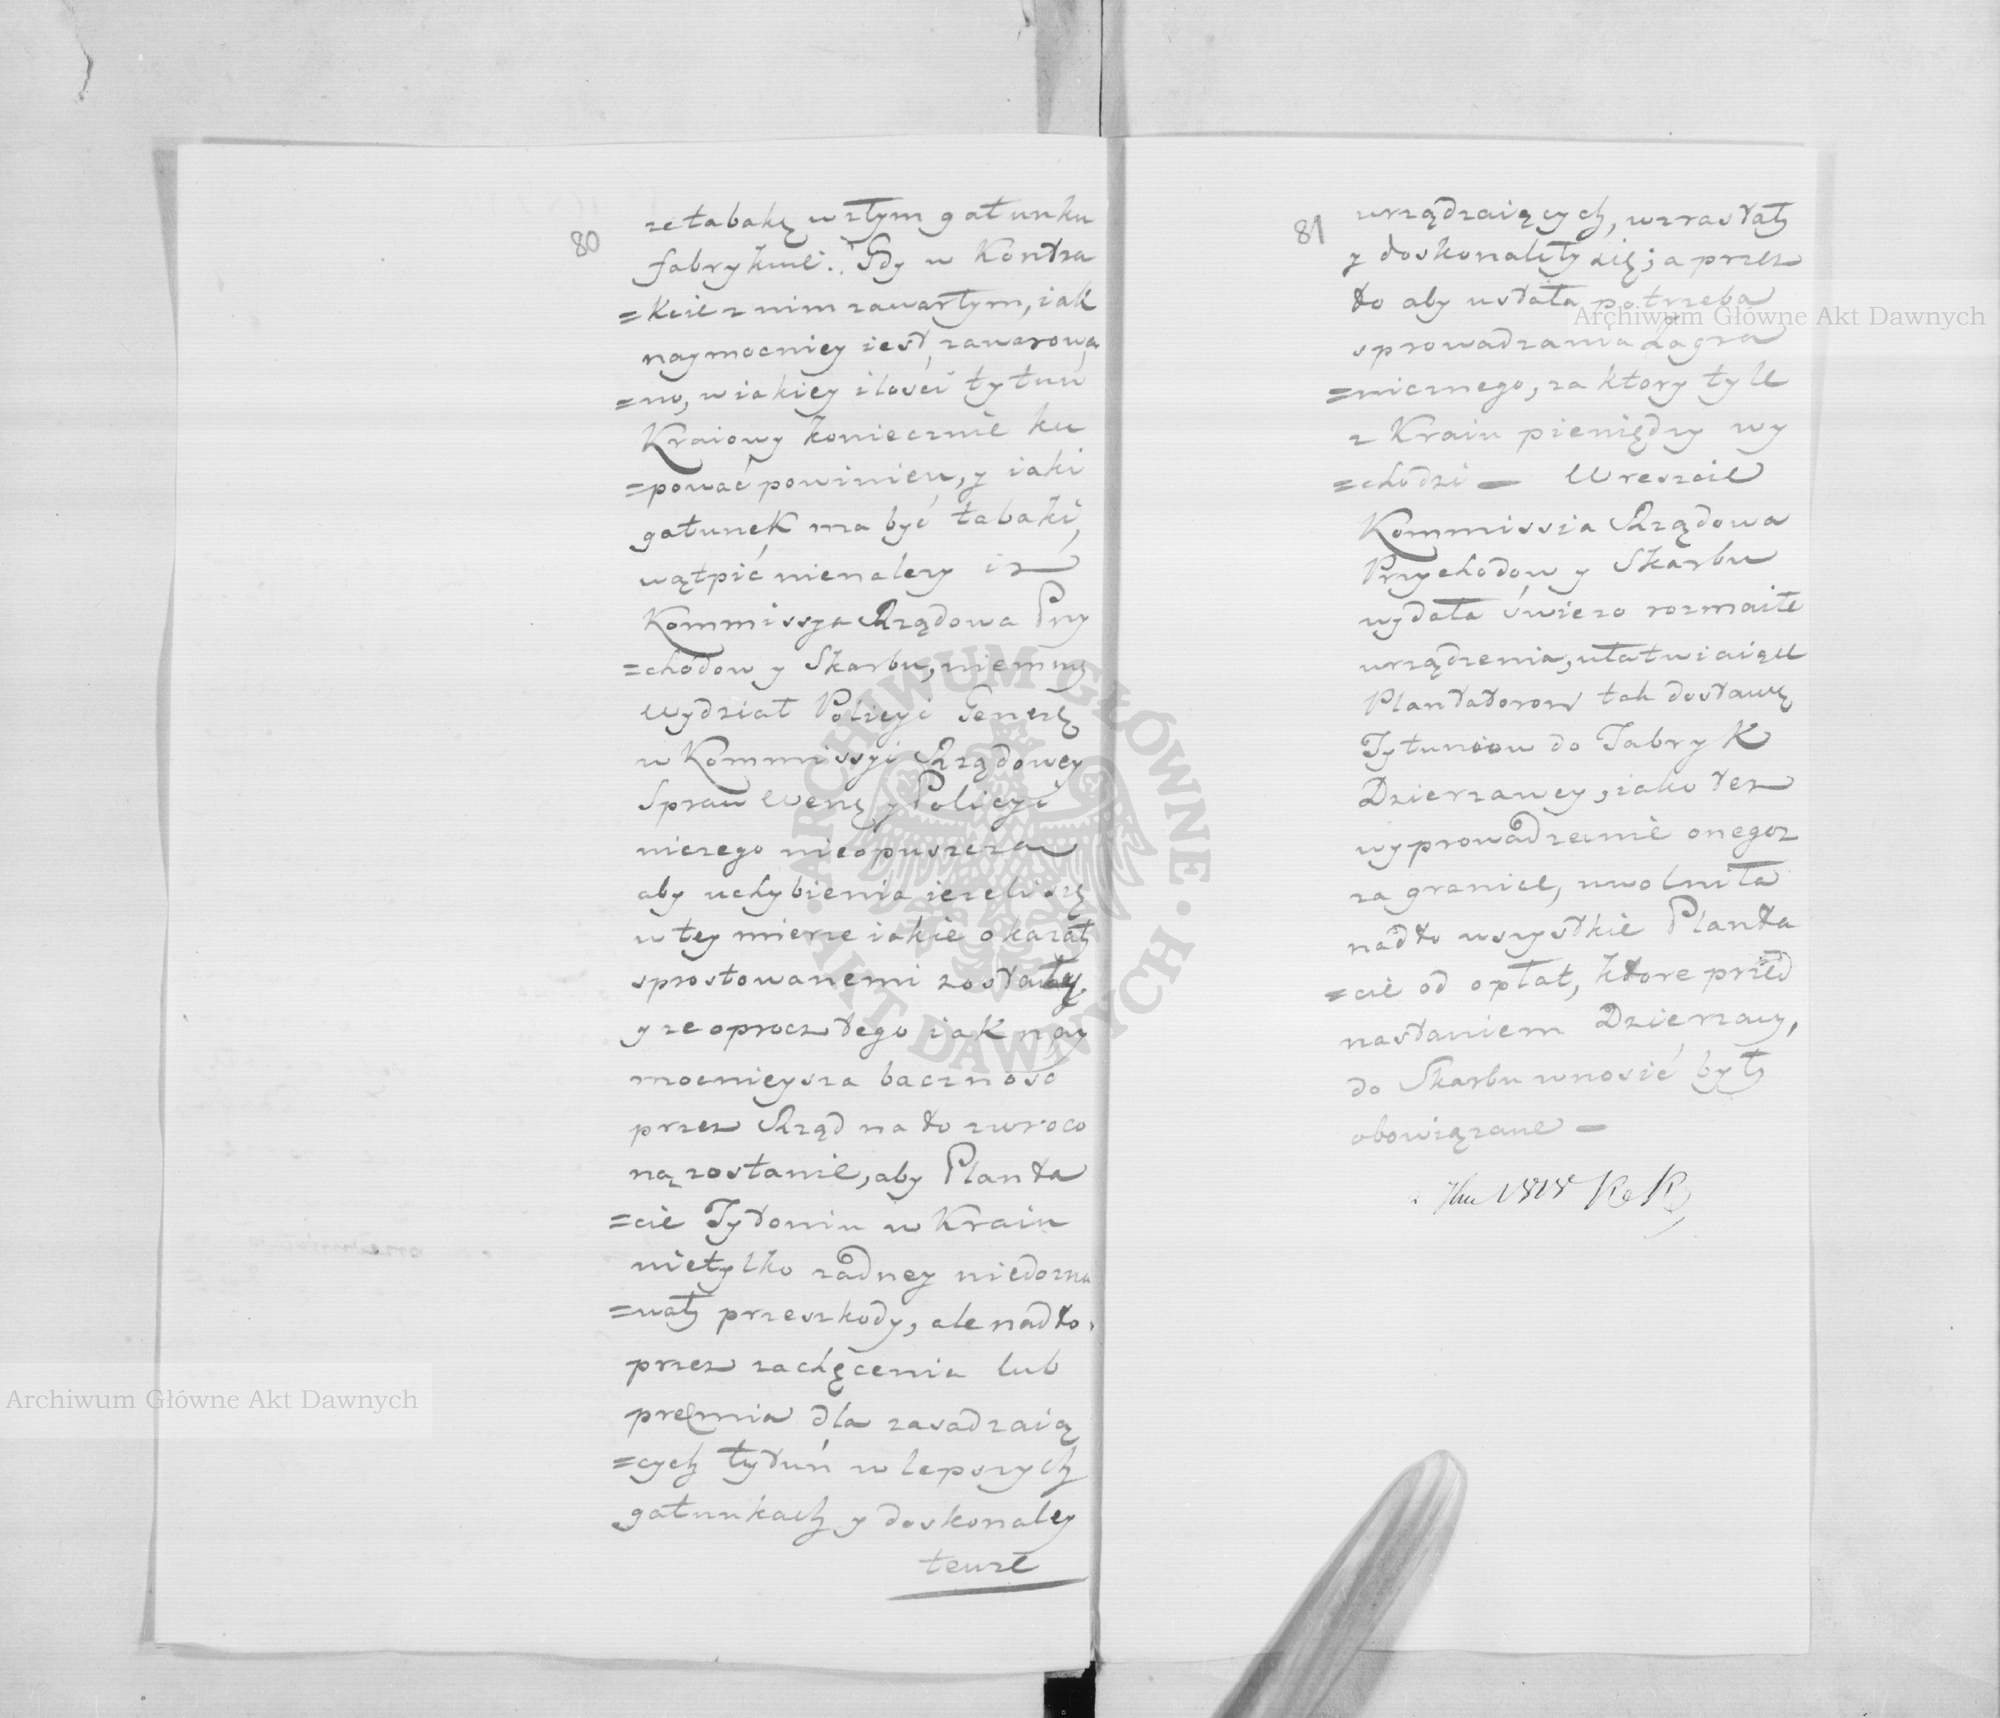 80
ze tabakę w złym gatunku
fabrykuie. Gdy w Kontra
=kcie z nim zawartym, iak
naymocniey iest zawarowa
=no, w iakiey ilości tytuń
Kraiowy koniecznie ku
=pować powinien, y iaki
gatunek ma być tabaki,
wątpić nienależy iż
Kommissya Rządowa Przy
=chodow y Skarbu, niemniey
Wydział Policyi
w Kommissyi Rządowey
Spraw Wewnę y Policyi
niczego nieopuszcza
aby uchybienia ieżeli się
w tey mierze iakie okazały
sprostowanemi zostały
y ze oprocz tego iak nay
mocnieysza baczność
przez Rząd na to zwroco
ną zostanie, aby Planta
=cie Tytoniu w Kraiu
nietylko żadney niedozna
=wały przeszkody, ale nadto
przez zachęcenia lub
premia dla zasadzaią
=cych tytuń w lepszych
gatunkach y doskonaley
tenże
81
urządzaiących, wzrastały
y doskonaliły się; a przez
to aby ustała potrzeba
sprowadzania Zagra
=nicznego, za ktory tyle
z Kraiu pieniędzy wy
=chodzi — Wreszcie
Kommissia Rządowa
Przychodow y Skarbu
wydała świeżo rozmaite
urządzenia, ułatwiaiące
Plantatorow tak dostawę
Tytuniow do Fabryk
Dzierzawcy, iako też
wyprowadzenie onegoz
za granice, uwolniła
nadto wszystkie Planta
=cie od opłat, ktore przed
nastaniem Dzierzawy,
do Skarbu wnosić były
obowiązane —
Archiwum Główne Akt Dawnych
Archiwum Główne Akt Dawnych
ARCHIWUM GŁÓWNE · AKT DAWNYCH ·